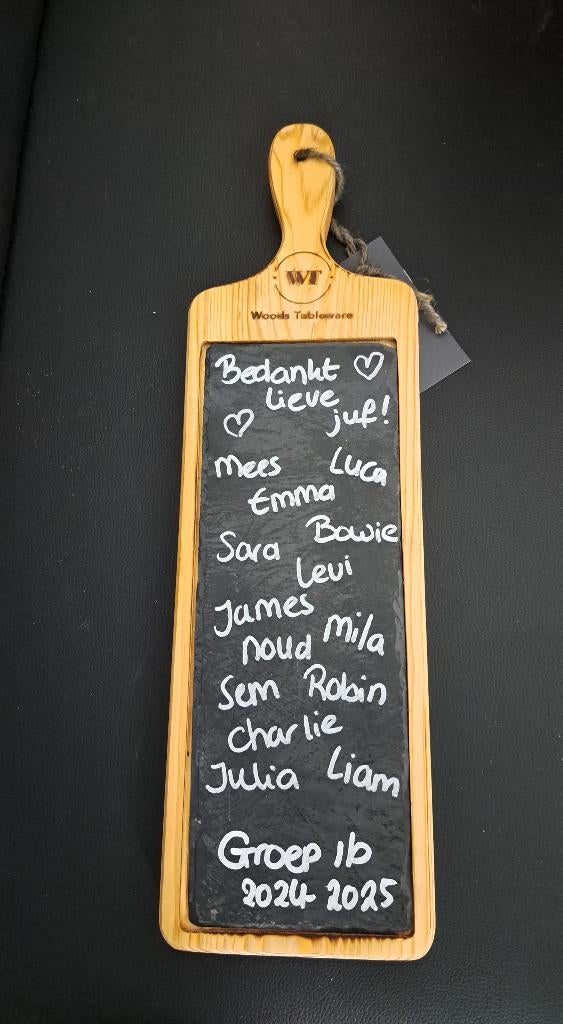 WT
Woods Tableware
Bedankt ♡
lieve
♡ juf!
Mees Luca
Emma
Sara Bowie
Levi
James
Noud Mila
Sem Robin
Charlie
Julia Liam
Groep 1b
2024 2025